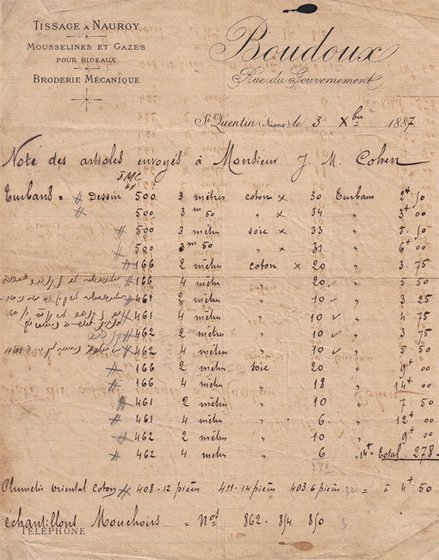 TISSAGE A NAUROY
MOUSSELINES ET GAZES
POUR RIDEAUX
BRODERIE MÉCANIQUE
Boudoux
Rue du Gouvernement
St Quentin (Aisne) le 3 Xbre 1887
Note des articles envoyés à Monsieur J. M. Cohen
JMC
Turbans = # Dessin 500 3 mètres coton x 30 Turbans 2f 50
# 500 3m 50 " x 34 " 3f 00
# 500 3 mètres soie x 33 " 5. 50
# 500 3m 50 " x 31 " 6f 00
# 166 2 mètres coton x 20 " 3. 75
# 166 4 mètres " 20 " 5 50
# 461 2 mètres " 10 " 3 25
# 461 4 mètres " 10 " 4 75
# 462 2 mètres " 10 " 3 75
# 462 4 mètres " 10 " 5 50
# 166 2 mètres soie 20 " 9f 00
# 166 4 mètres " 18 " 14f 00
# 461 2 mètres " 10 " 7 50
# 461 4 mètres " 6 " 12f 00
# 462 2 mètres " 10 " 9f 00
# 462 4 mètres " 6 " 14f Total 278.
Plumetis Oriental Coton # 408 - 12 pièces 411 - 14 pièces 403 6 pièces = à 4f 50
échantillons Mouchoirs = Nos 862 - 814 810
TÉLÉPHONE